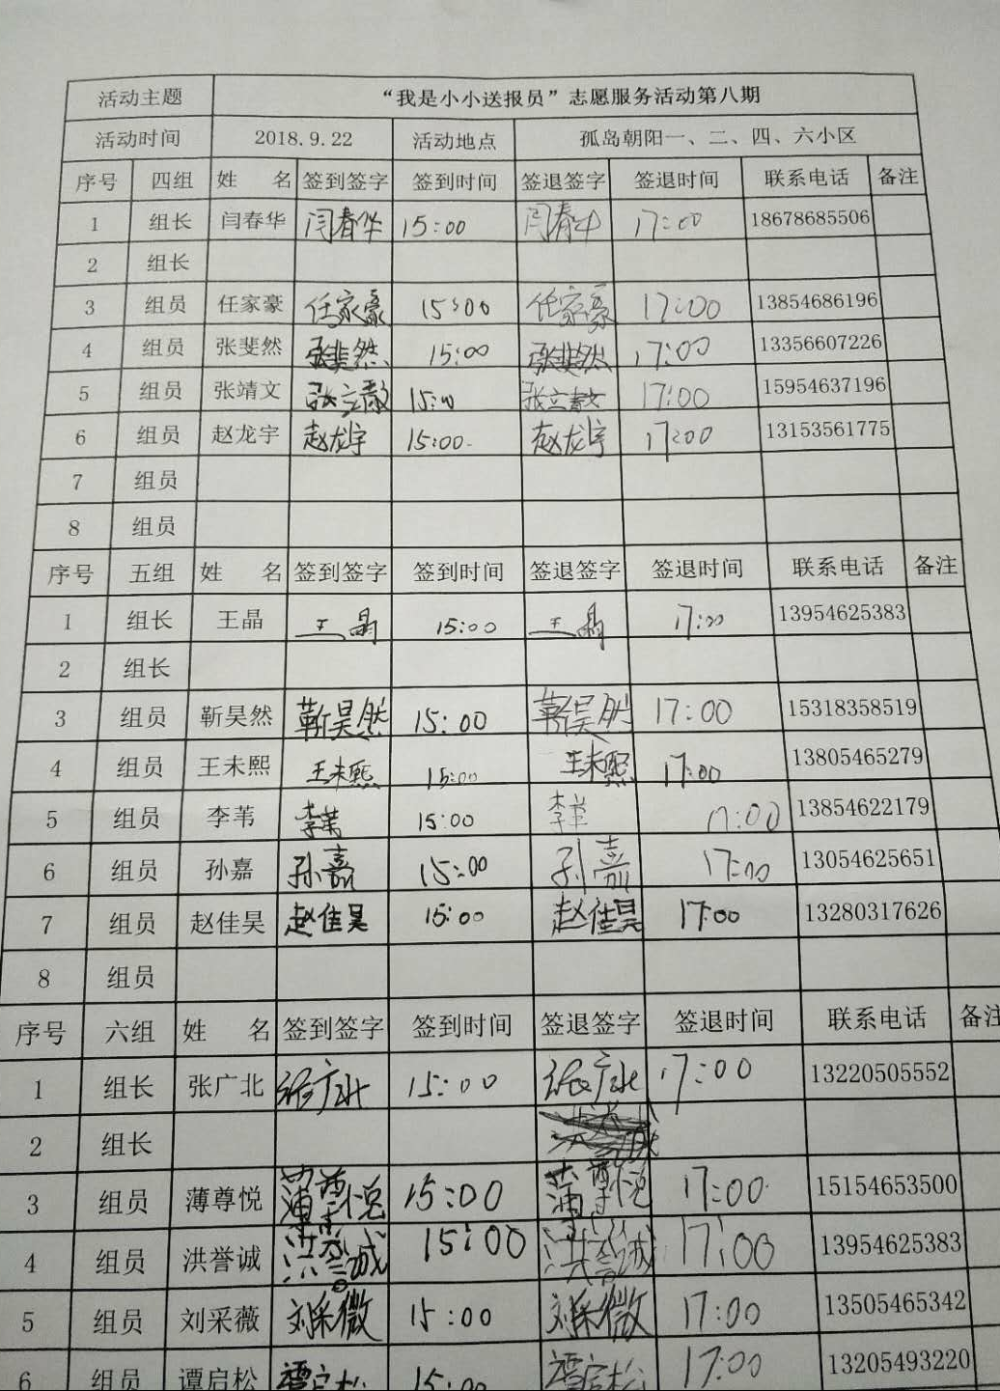 活动主题 “我是小小送报员”志愿服务活动第八期
活动时间 2018.9.22 活动地点 孤岛朝阳一、二、四、六小区
序号 四组 姓 名 签到签字 签到时间 签退签字 签退时间 联系电话 备注
1 组长 闫春华 闫春华 15:00 闫春华 17:00 18678685506
2 组长
3 组员 任家豪 任家豪 15:00 任家豪 17:00 13854686196
4 组员 张斐然 张斐然 15:00 张斐然 17:00 13356607226
5 组员 张靖文 15:00 17:00 15954637196
6 组员 赵龙宇 赵龙宇 15:00 赵龙宇 17:00 13153561775
7 组员
8 组员
序号 五组 姓 名 签到签字 签到时间 签退签字 签退时间 联系电话 备注
1 组长 王晶 王晶 15:00 王晶 17:00 13954625383
2 组长
3 组员 靳昊然 靳昊然 15:00 靳昊然 17:00 15318358519
4 组员 王未熙 王未熙 15:00 王未熙 17:00 13805465279
5 组员 李苇 李苇 15:00 李苇 17:00 13854622179
6 组员 孙嘉 孙嘉 15:00 孙嘉 17:00 13054625651
7 组员 赵佳昊 赵佳昊 15:00 赵佳昊 17:00 13280317626
8 组员
序号 六组 姓 名 签到签字 签到时间 签退签字 签退时间 联系电话 备注
1 组长 张广北 张广北 15:00 张广北 17:00 13220505552
2 组长
3 组员 薄尊悦 薄尊悦 15:00 薄尊悦 17:00 15154653500
4 组员 洪誉诚 洪誉诚 15:00 洪誉诚 17:00 13954625383
5 组员 刘采薇 刘采薇 15:00 刘采薇 17:00 13505465342
6 组员 谭启松 谭启松 15:00 谭启松 17:00 13205493220